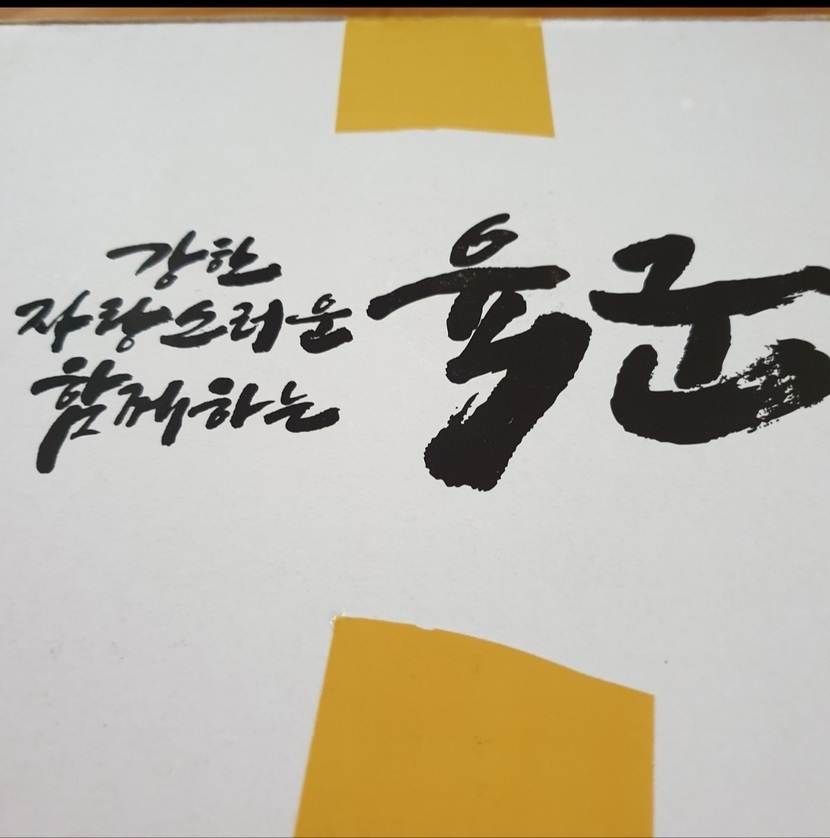 강한
자랑스러운
함께하는
육군